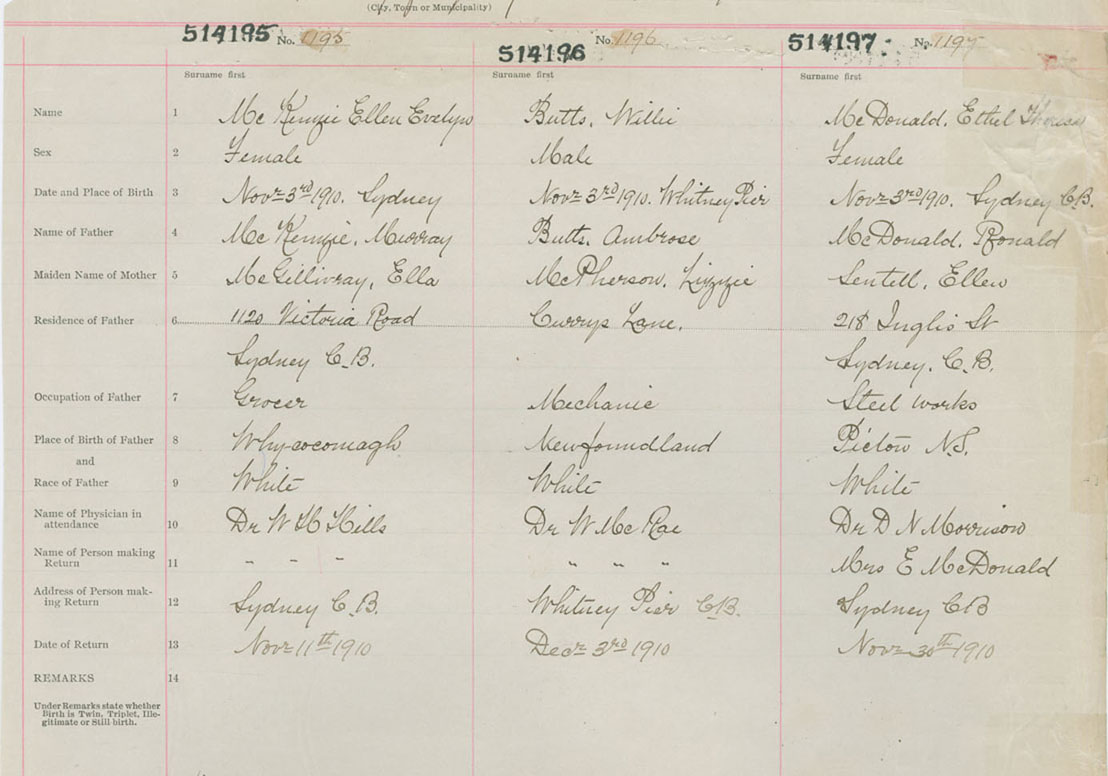 (City, Town or Municipality)
514195 No. 1195
514196 No. 1196
514197 No. 1197
Surname first Surname first Surname first
Name 1 McKenzie Ellen Evelyn Butts, Willie McDonald, Ethel Theresa
Sex 2 Female Male Female
Date and Place of Birth 3 Novr 3rd 1910. Sydney Novr 3rd 1910. Whitney Pier Novr 3rd 1910. Sydney C.B.
Name of Father 4 McKenzie, Murray Butts, Ambrose McDonald, Ronald
Maiden Name of Mother 5 McGillivray, Ella McPherson, Lizzie Sentell, Ellen
Residence of Father 6 1120 Victoria Road Currys Lane. 218 Inglis St
Sydney C.B. Sydney. C.B.
Occupation of Father 7 Grocer Mechanic Steel works
Place of Birth of Father 8 Whycocomagh Newfoundland Pictou N.S.
and
Race of Father 9 White White White
Name of Physician in
attendance 10 Dr W H Hills Dr W McRae Dr D N Morrison
Name of Person making
Return 11 " " " " " " Mrs E McDonald
Address of Person mak-
ing Return 12 Sydney C.B. Whitney Pier C.B. Sydney CB
Date of Return 13 Novr 11th 1910 Decr 3rd 1910 Novr 30th 1910
REMARKS 14
Under Remarks state whether
Birth is Twin, Triplet, Ille-
gitimate or Still birth.